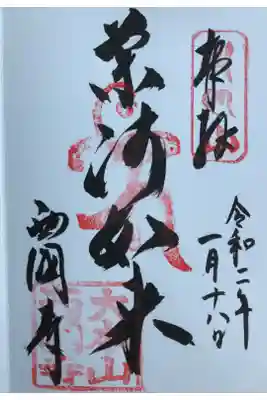 奉拝
令和二年
一月十八日
薬師如来
西國寺